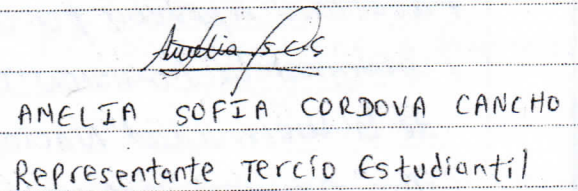 Amelia S C C
AMELIA SOFÍA CORDOVA CANCHO
Representante Tercio Estudiantil